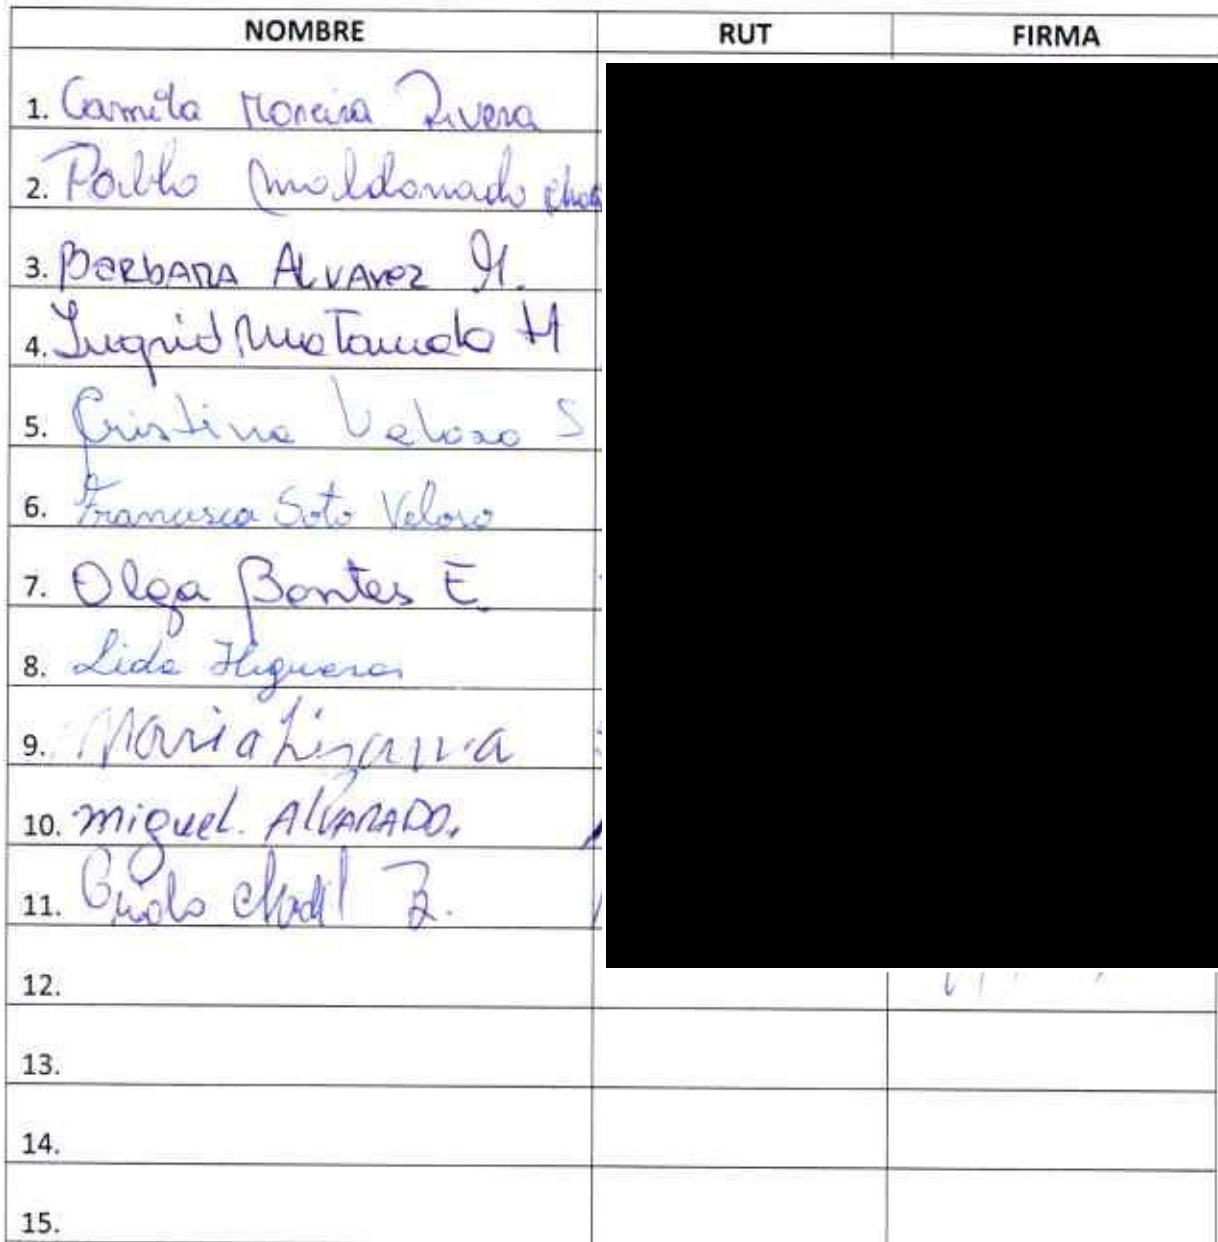 NOMBRE RUT FIRMA
1. Camila Moreira Rivera
2. Pablo Maldonado
3. BERBARA ALVAREZ M.
4. Ingrid Matamala H
5. Cristina Veloso S
6. Francisca Soto Veloso
7. Olga Bontes E.
8. Lida Higueras
9. Maria
10. miguel. AlVARADO.
11. Guido
12.
13.
14.
15.